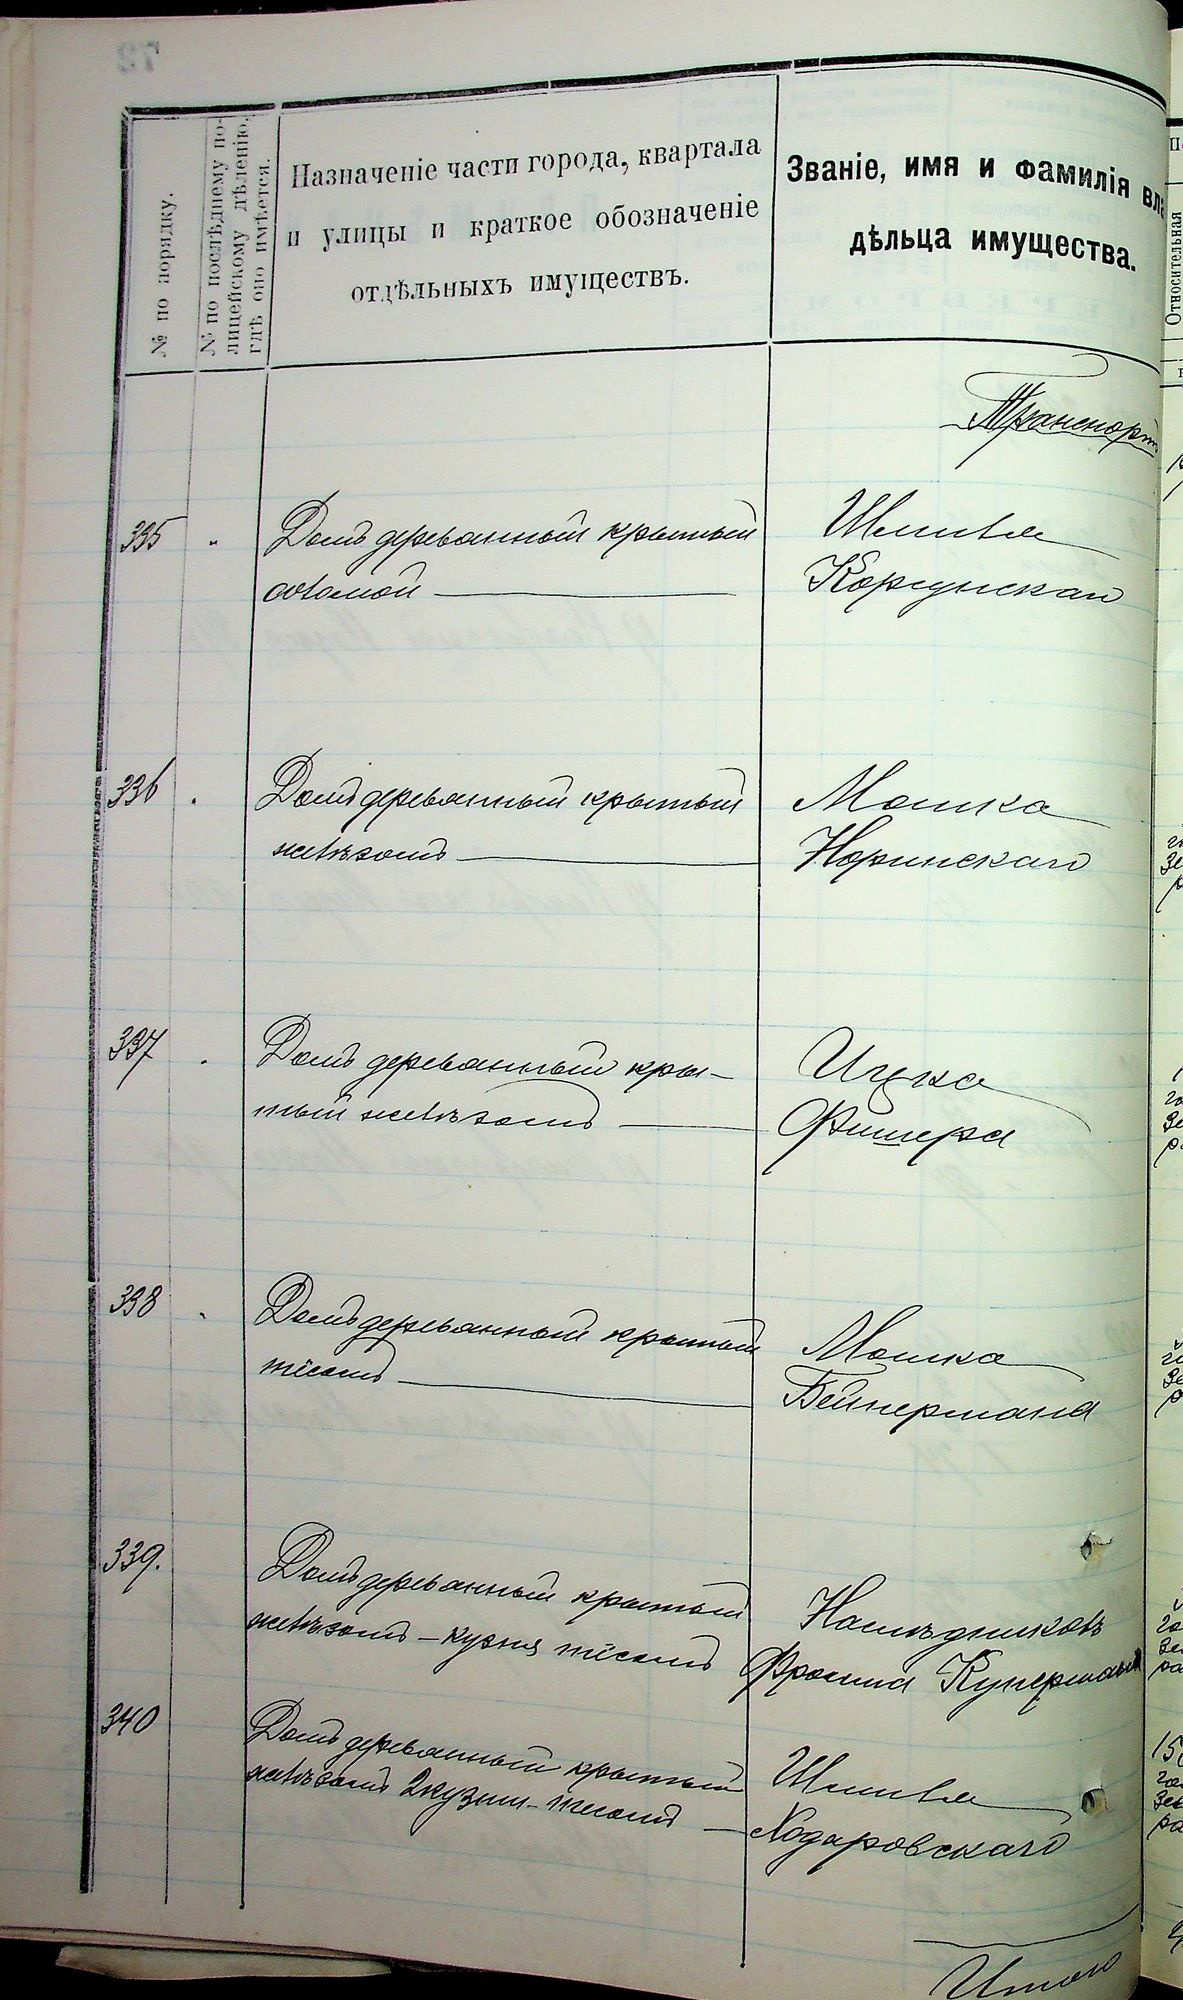 № по порядку.
№ по послѣднему по-
лицейскому дѣленію,
гдѣ оно имѣется.
Назначеніе части города, квартала
и улицы и краткое обозначеніе
отдѣльныхъ имуществъ.
Званіе, имя и фамилія вла
дѣльца имущества.
Относительная
Транспортъ
335 " Домъ деревянный крытый
соломой
Шмиля
Корсунская
336 . Домъ деревянный крытый
желѣзомъ
Мошка
Норинскаго
337 . Домъ деревянный кры-
тый желѣзомъ
Ицка
Фишера
338 . Домъ деревянный крытый
тёсомъ
Мошка
Бейнермана
339. Домъ деревянный крытый
желѣзомъ – кузня тёсомъ
Наслѣдниковъ
Фроима Купермана
340 Домъ деревянный крытый
желѣзомъ 2 кузни – тёсомъ
Шмиля
Ходаровскаго
Итого